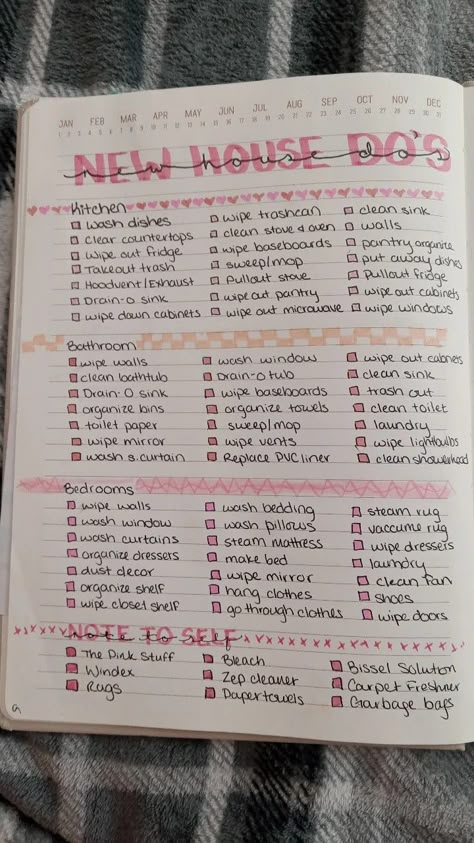 JAN FEB MAR APR MAY JUN JUL AUG SEP OCT NOV DEC
NEW HOUSE DO'S
new house do's
Kitchen
wash dishes
wipe trashcan
clean sink
Clear countertops
clean stove & oven
walls
wipe out fridge
wipe baseboards
pantry organize
Takeout trash
sweep/mop
put away dishes
Hoodvent/Exhaust
Pullout stove
Pullout fridge
Drain-o sink
wipe out pantry
wipe out cabinets
wipe down cabinets
wipe out microwave
wipe windows
Bathroom
wipe walls
wash window
wipe out cabinets
clean bathtub
Drain-o tub
clean sink
Drain-O sink
wipe baseboards
trash out
organize bins
organize towels
clean toilet
toilet paper
sweep/mop
laundry
wipe mirror
wipe vents
wipe lightbulbs
wash s.curtain
Replace PVC liner
clean showerhead
Bedrooms
wipe walls
wash bedding
steam rug
wash window
wash pillows
vaccume rug
wash curtains
steam mattress
wipe dressers
organize dressers
make bed
laundry
dust decor
wipe mirror
clean fan
organize shelf
hang clothes
shoes
wipe closet shelf
go through clothes
wipe doors
NOTE TO SELF
note to self
The Pink Stuff
Bleach
Bissel Solution
Windex
Zep cleaner
Carpet Freshner
Rugs
Papertowels
Garbage bags